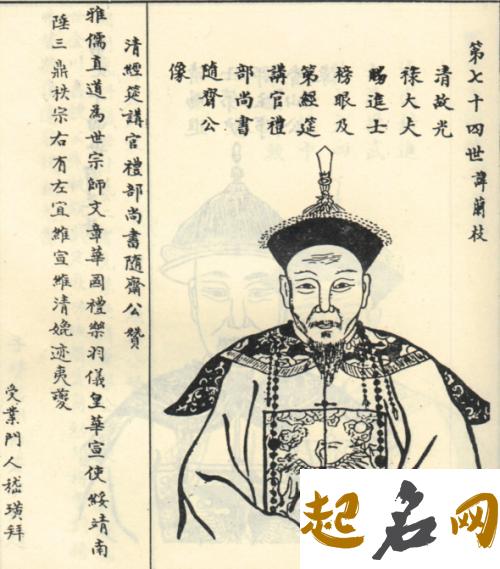 第七十四世諱蘭枝
清故光
祿大夫
賜進士
榜眼及
第經筵
講官禮
部尚書
隨齋公
像
清經筵講官禮部尚書隨齋公贊
雅儒直道為世宗師文章華國禮樂羽儀皇華宣使綏靖南
陲三鼎秩宗右有左宜維宣維清媲迹夷夔
受業門人嵇璜拜
起名网